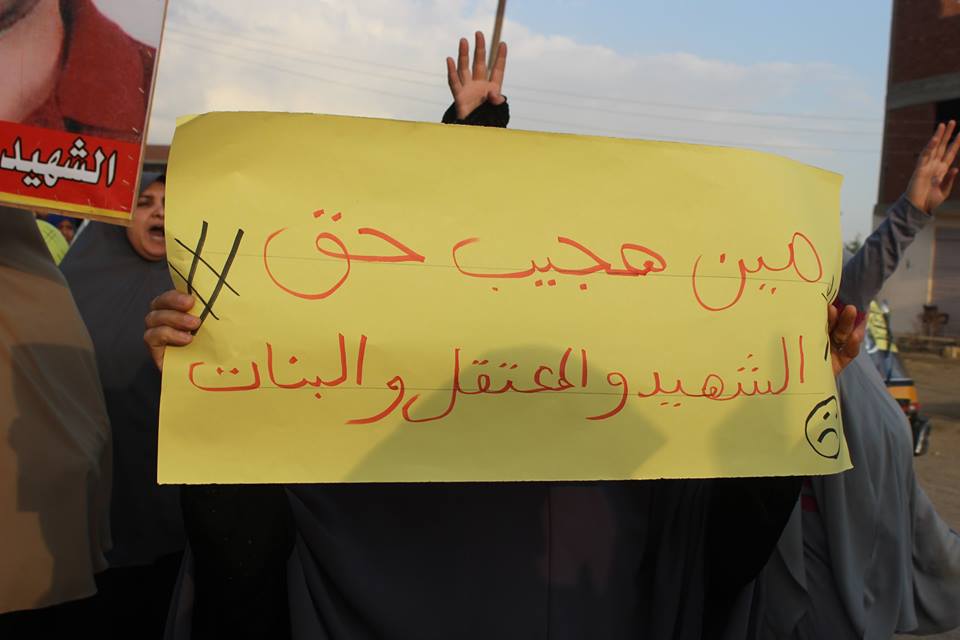 الشهيد
مين هجيب حق
الشهيد والمعتقل والبنات